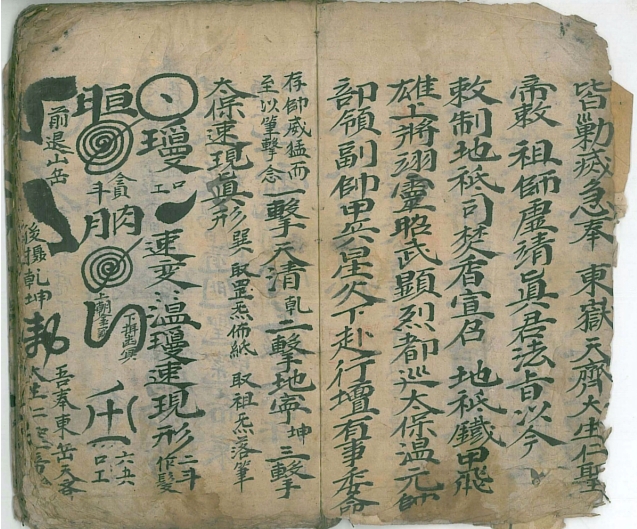 皆勦滅急奉 東嶽天齊大生仁聖
帝敕 祖師虛靖真君法旨以今
敕制地祇司焚香宣召 地祇鐵甲飛
雄上將翊靈昭武顯烈都巡太保溫元帥
部領副帥甲兵星火下赴行壇有事委命
存帥威猛而
至以筆擊念
一擊天清乾二擊地寧坤三擊
太保速現真形 巽取罡炁佈紙 取祖炁落筆
瓊 口工 速变溫瓊速現形 二斗作髮
晅 斗 月 肉
六六 口工
前退山岳
後攝乾坤
吾奉東岳天齊
大生仁聖